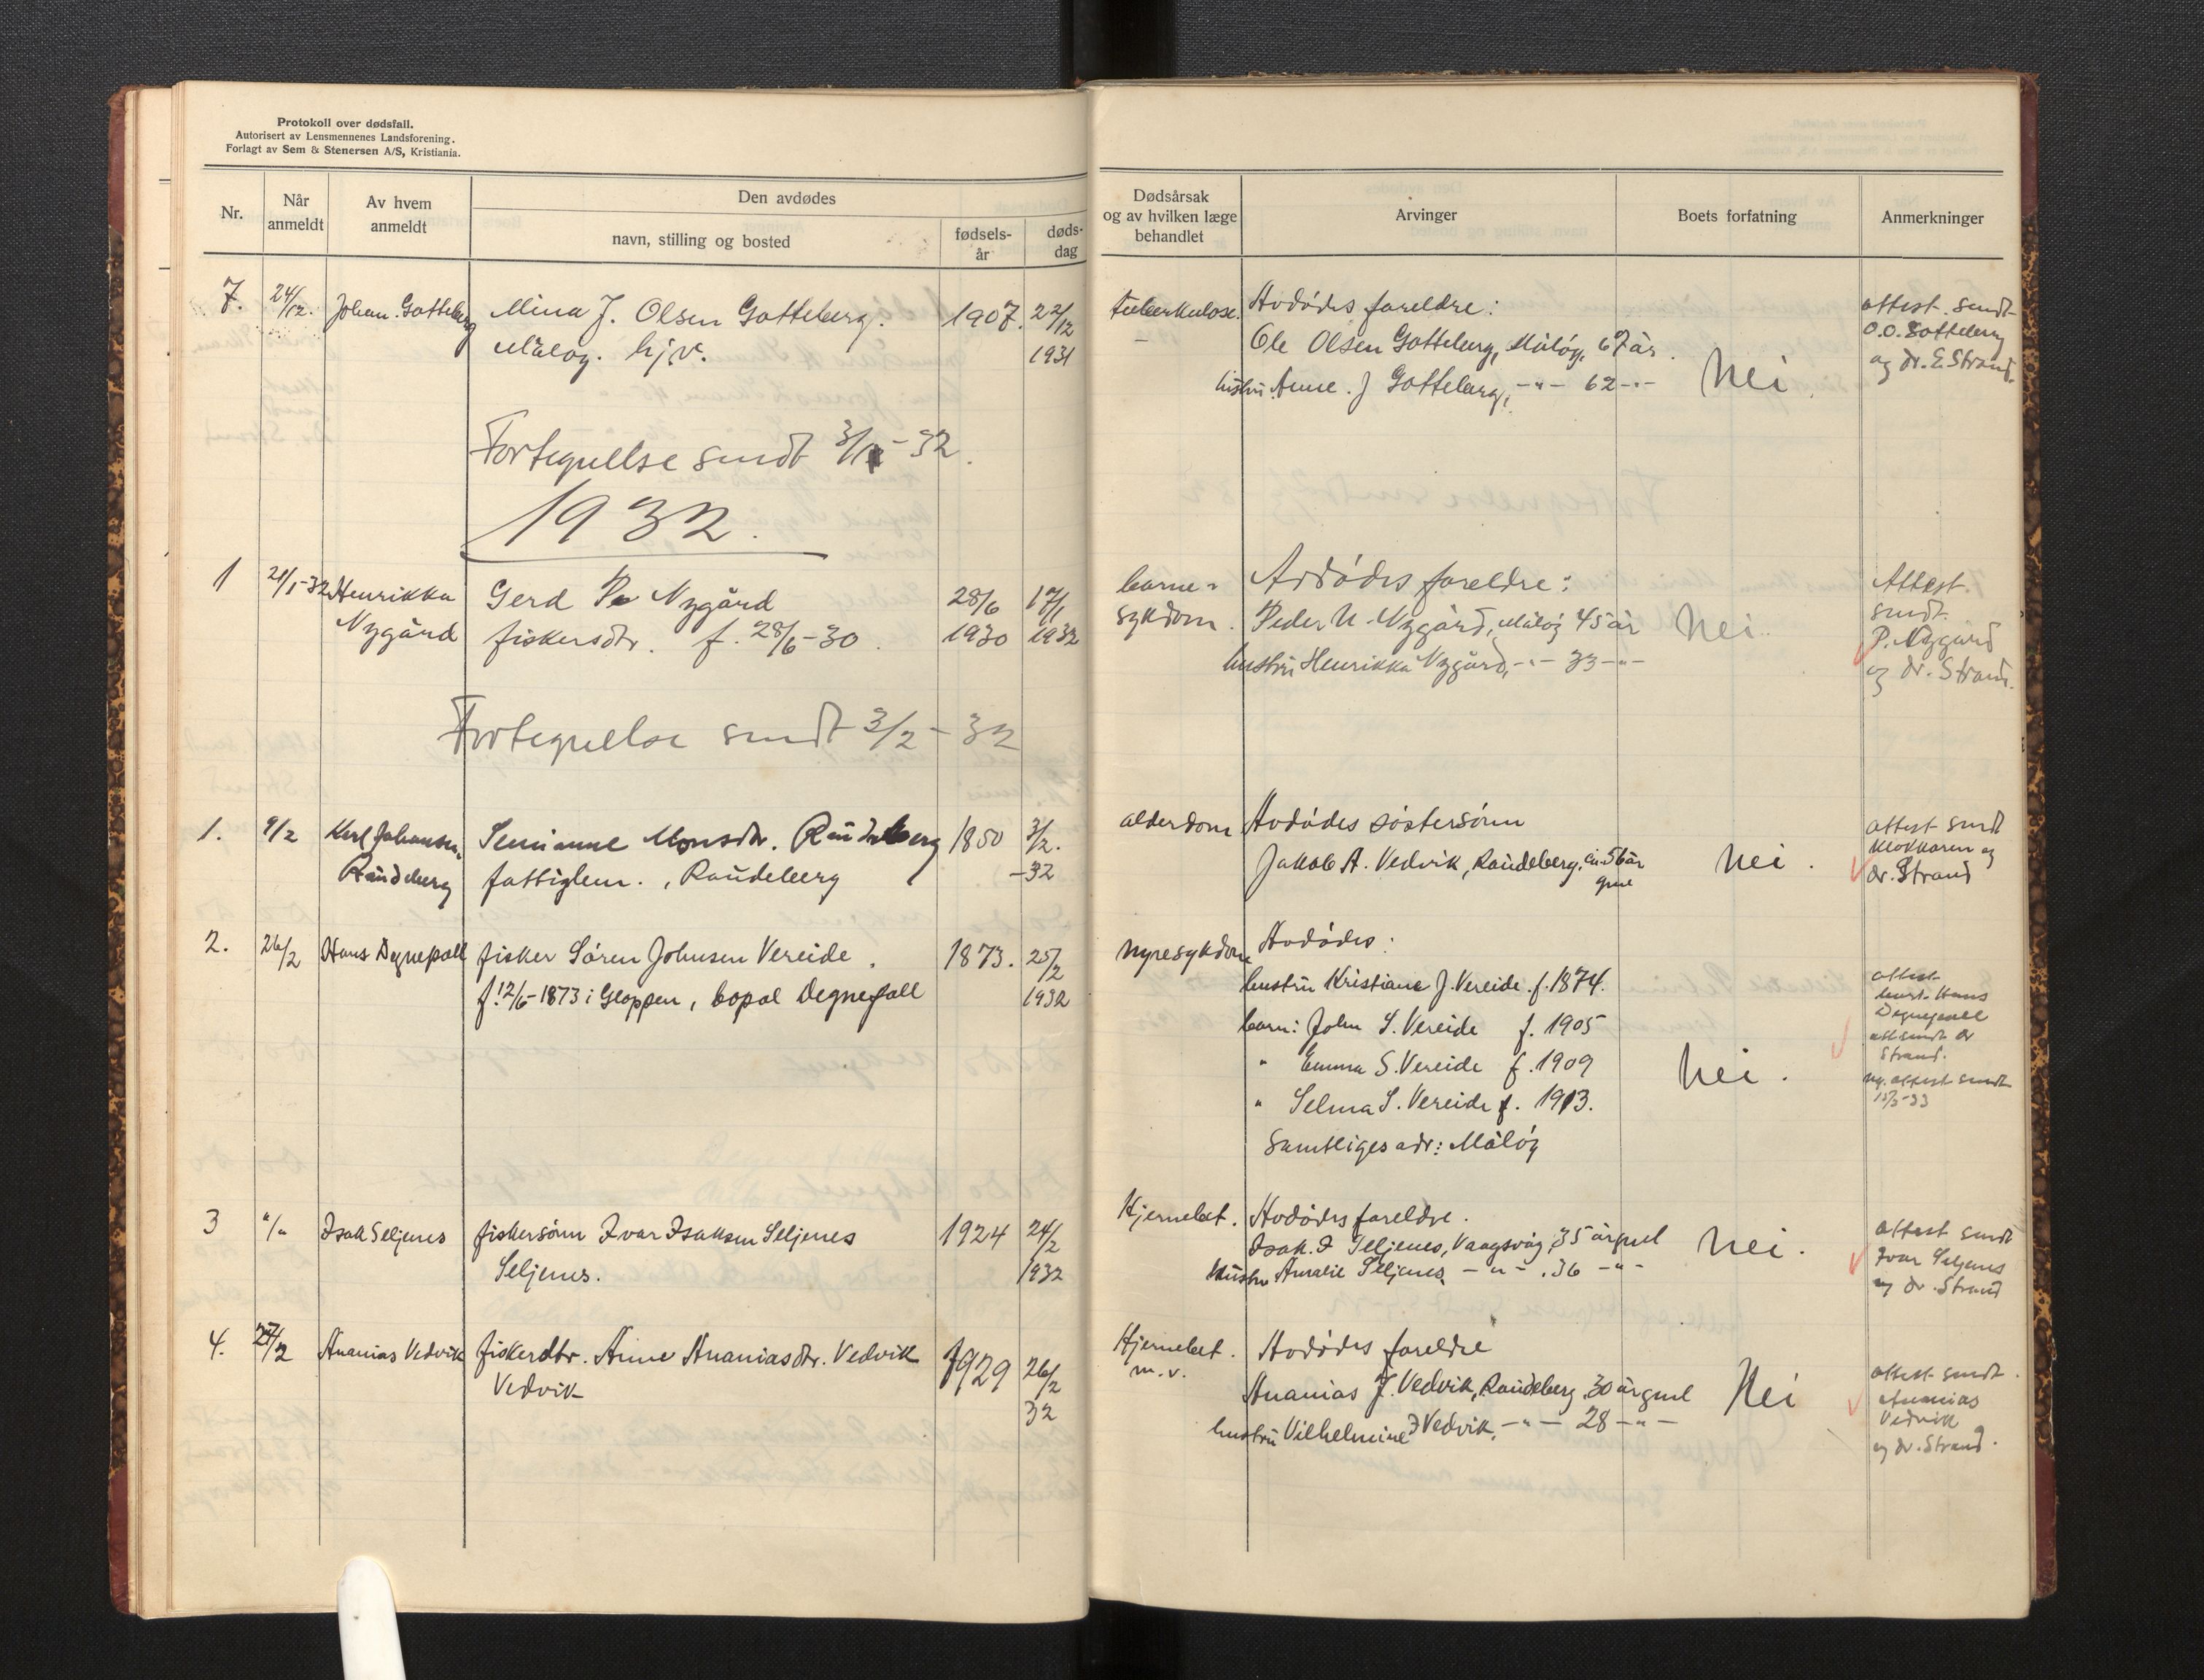 Protokoll over dødsfall.
Autorisert av Lensmennenes Landsforening.
Forlagt av Sem & Stenersen A/S, Kristiania.
Nr.
Når anmeldt
Av hvem anmeldt
Den avdødes
navn, stilling og bosted
fødsels-år
døds-dag
Dødsårsak og av hvilken læge behandlet
Arvinger
Boets forfatning
Anmerkninger
7. 24/12. Johan. Gotteberg
Mina J. Olsen Gotteberg.
Måløy. hjv.
1907. 22/12
1931
tuberkulose.
Avdødes foreldre:
Ole Olsen Gotteberg, Måløy, 67 år.
hustru Anne. J Gotteberg, -"- 62 -"-
Nei.
attest. sendt
O.O. Gotteberg
og dr. E. Strand.
Fortegnelse sendt 3/1-32.
1932.
1 21/1-32 Henrikka
Nygård
Gerd P. Nygård
fiskersdtr. f. 28/6-30.
28/6
1930
17/1
1932
barne-
sykdom.
Avdødes foreldre:
Peder N. Nygård, Måløy 45 år
hustru Henrikka Nygård, -"- 33 -"-
Nei.
Attest.
sendt.
P. Nygård
og dr. Strand.
Fortegnelse sendt 3/2-32
1. 9/2 Karl Johansen.
Raudeberg
Monsdtr. Raudeberg
fattiglem., Raudeberg
1850 3/2.
-32
alderdom
Avdødes søstersønn
Jakob A. Vedvik, Raudeberg. ca. 56 år
gml
Nei.
attest sendt
klokkaren og
dr. Strand
2. 26/2 Hans Degnepoll
fisker Søren Johnsen Vereide.
f. 12/6-1873 i Gloppen, bopal Degnepoll
1873. 25/2
1932
Nyresykdom
Avdødes:
hustru Kristiane J. Vereide. f. 1874.
barn: John S. Vereide f. 1905
" Emma S. Vereide f. 1909
" Selma S. Vereide f. 1913.
Samtliges adr: Måløy
Nei.
attest
Hans
Degnepoll
sendt dr
Strand.
ny. attest sendt
15/3-33
3 "/" Isak Seljenes
fiskersønn Ivar Isaksen Seljenes
Seljenes.
1924 24/2
1932
Hjernebet.
Avdødes foreldre.
Isak. I Seljenes, Vaagsvåg, 35 år gml
Hustru Amalie Seljenes -"-. 36 -"-
Nei.
Attest sendt
Ivar Seljenes
og dr. Strand
4. 27/2 Ananias Vedvik
fiskerdtr. Anne Ananiasdtr. Vedvik
Vedvik
1929 26/2
32
Hjernebet.
m.v.
Avdødes foreldre
Ananias J. Vedvik, Raudeberg. 30 år gml
hustru Vilhelmine I Vedvik. -"- 28 -"-
Nei
attest sendt.
Ananias
Vedvik
og dr. Strand.